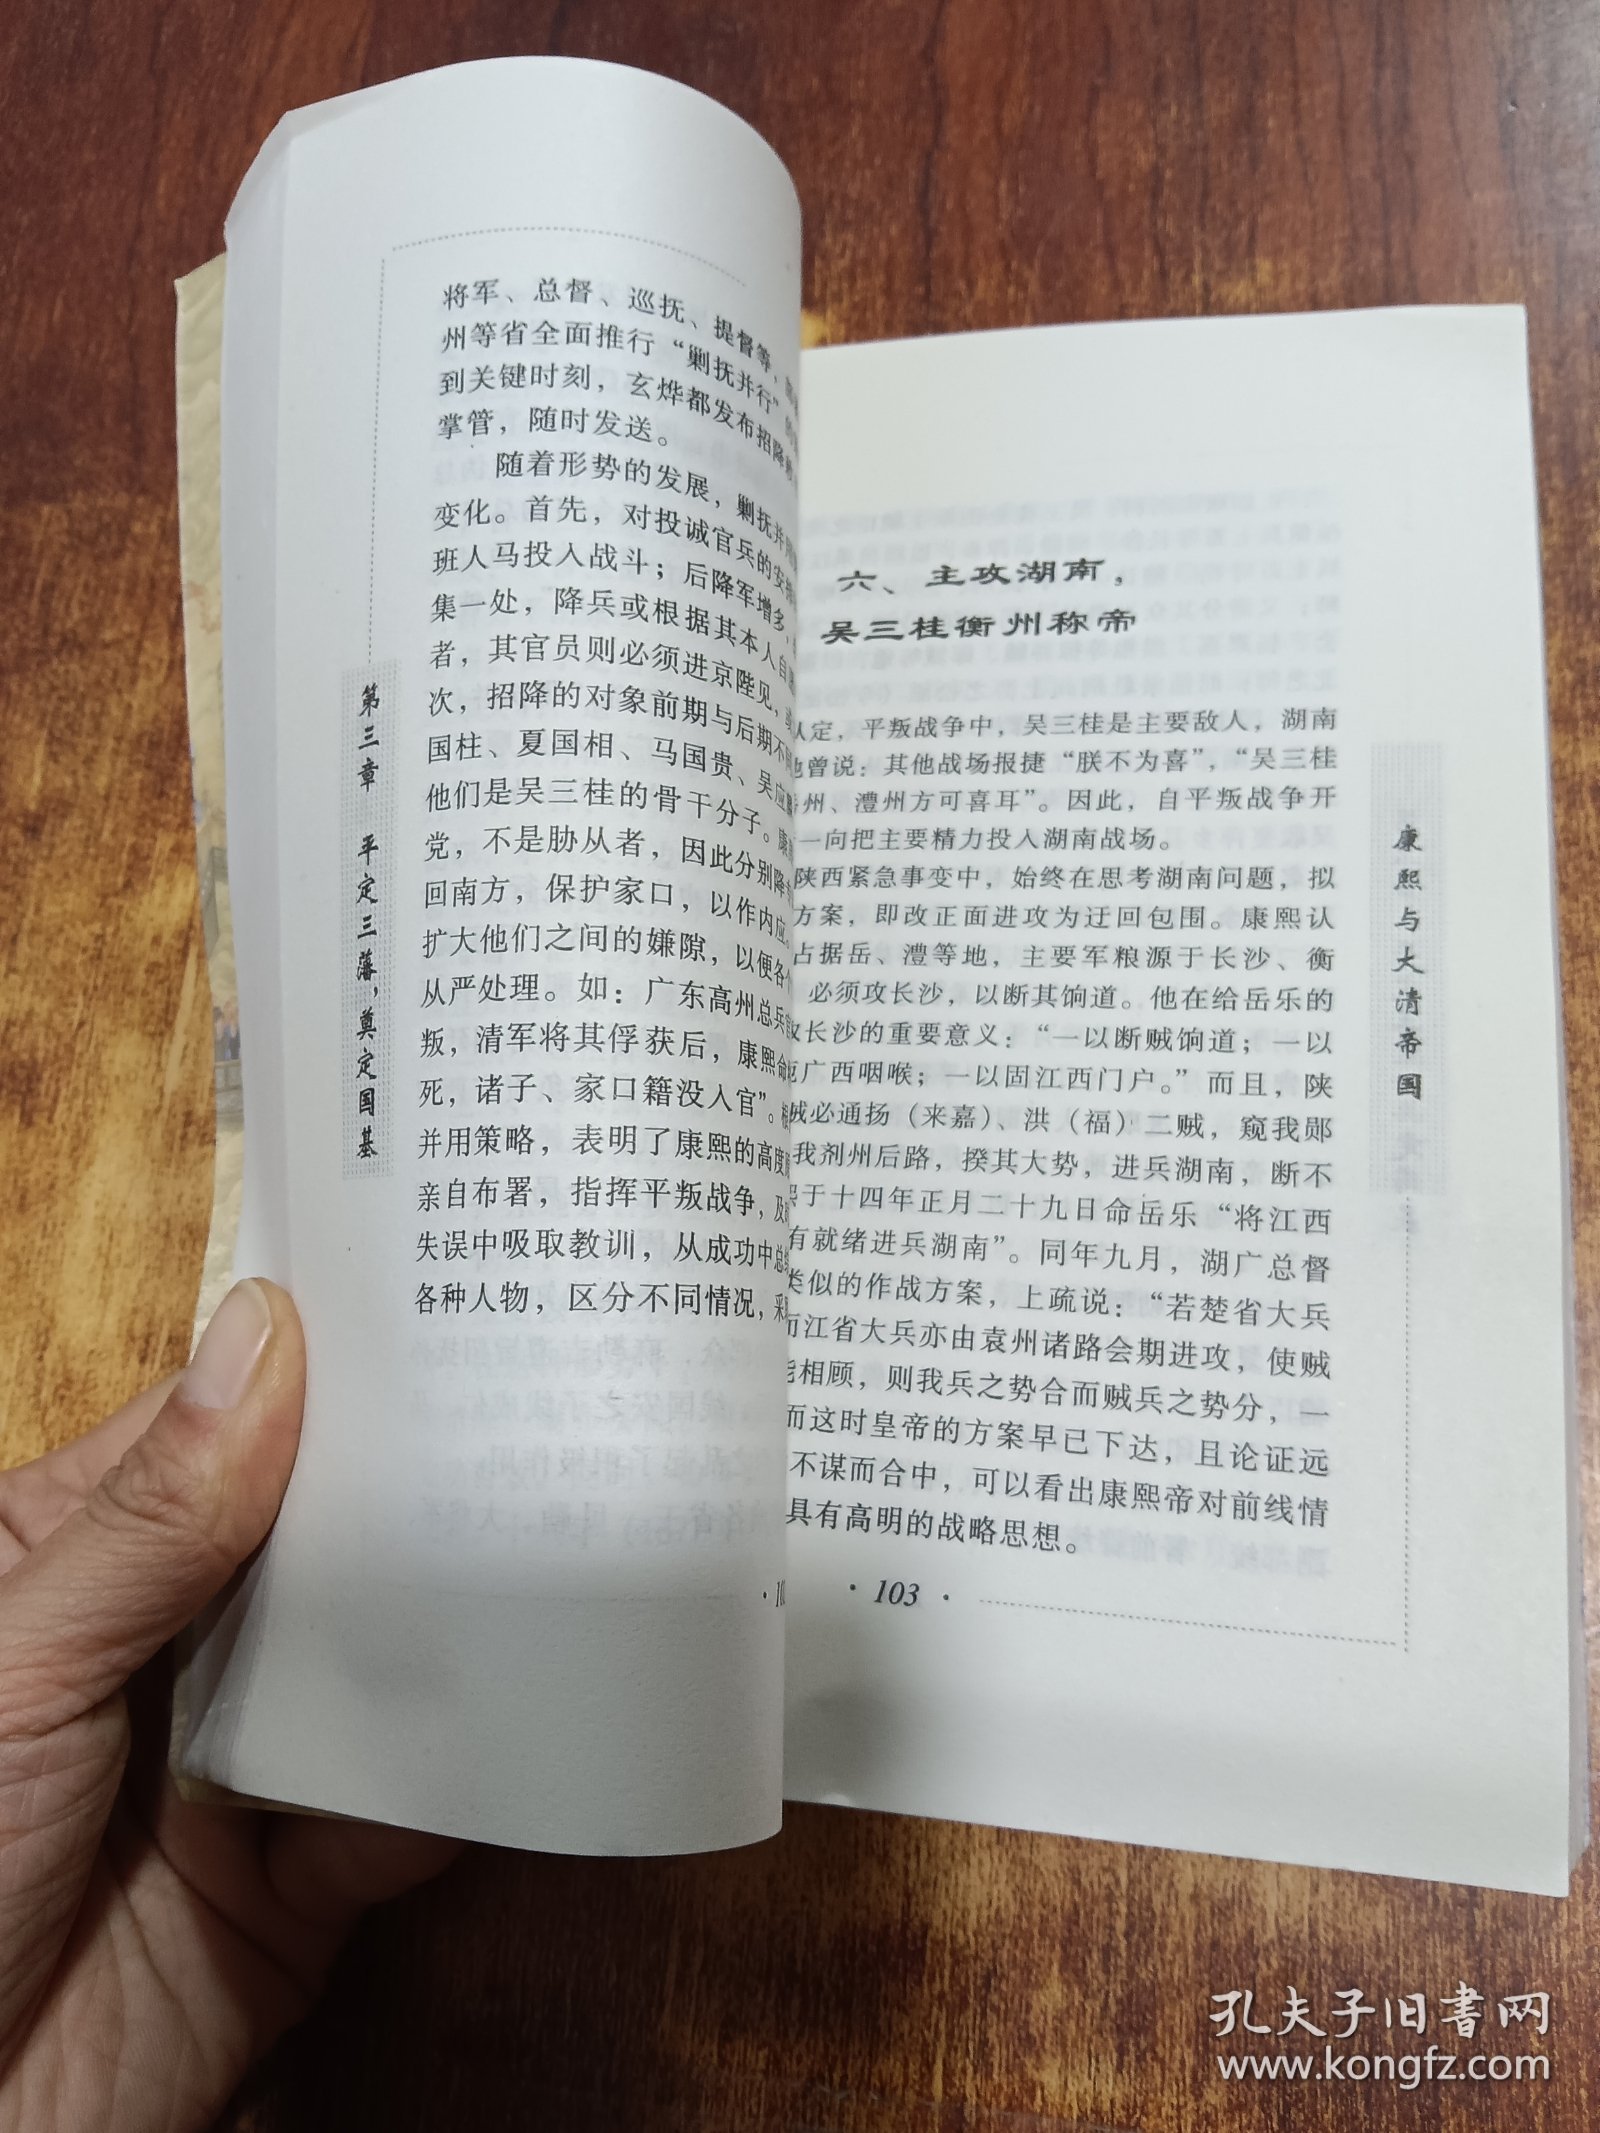 将军、总督、巡抚、提督等，
州等省全面推行“剿抚并行”
到关键时刻，玄烨都发布招降
掌管，随时发送。
随着形势的发展，剿抚并
变化。首先，对投诚官兵的安
班人马投入战斗；后降军增多，
集一处，降兵或根据其本人自
者，其官员则必须进京陛见，
次，招降的对象前期与后期不
国柱、夏国相、马国贵、吴应
他们是吴三桂的骨干分子。康
党，不是胁从者，因此分别降
回南方，保护家口，以作内应。
扩大他们之间的嫌隙，以便各个
从严处理。如：广东高州总兵
叛，清军将其俘获后，康熙命
死，诸子、家口籍没入官”。
并用策略，表明了康熙的高度
亲自布署，指挥平叛战争，及
失误中吸取教训，从成功中总
各种人物，区分不同情况，采
第三章 平定三藩，奠定国基
六、主攻湖南，
吴三桂衡州称帝
认定，平叛战争中，吴三桂是主要敌人，湖南
他曾说：其他战场报捷“朕不为喜”，“吴三桂
州、澧州方可喜耳”。因此，自平叛战争开
一向把主要精力投入湖南战场。
陕西紧急事变中，始终在思考湖南问题，拟
方案，即改正面进攻为迂回包围。康熙认
占据岳、澧等地，主要军粮源于长沙、衡
必须攻长沙，以断其饷道。他在给岳乐的
攻长沙的重要意义：“一以断贼饷道；一以
扼广西咽喉；一以固江西门户。”而且，陕
贼必通扬（来嘉）、洪（福）二贼，窥我郧
我剂州后路，揆其大势，进兵湖南，断不
熙于十四年正月二十九日命岳乐“将江西
有就绪进兵湖南”。同年九月，湖广总督
类似的作战方案，上疏说：“若楚省大兵
而江省大兵亦由袁州诸路会期进攻，使贼
能相顾，则我兵之势合而贼兵之势分，一
而这时皇帝的方案早已下达，且论证远
不谋而合中，可以看出康熙帝对前线情
具有高明的战略思想。
·103·
康熙与大清帝国
孔夫子旧书网
www.kongfz.com